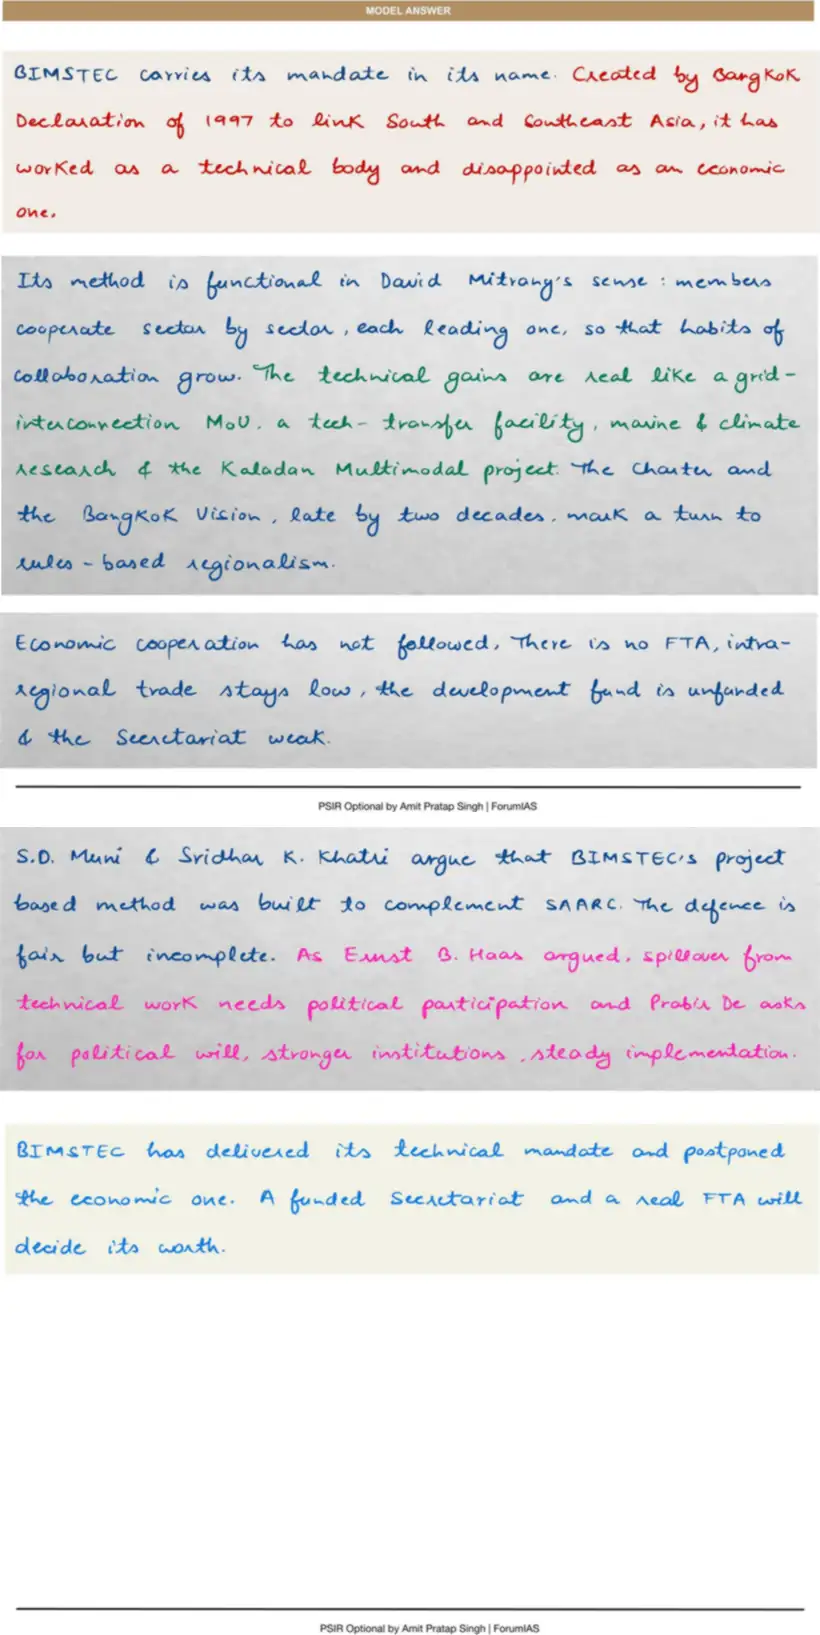 MODEL ANSWER
BIMSTEC carries its mandate in its name. Created by Bangkok
Declaration of 1997 to link South and Southeast Asia, it has
worked as a technical body and disappointed as an economic
one.
Its method is functional in David Mitrany's sense : members
cooperate sector by sector, each leading one, so that habits of
collaboration grow. The technical gains are real like a grid-
interconnection MoU, a tech-transfer facility, marine & climate
research & the Kaladan Multimodal project. The Charter and
the Bangkok Vision, late by two decades, mark a turn to
rules-based regionalism.
Economic cooperation has not followed. There is no FTA, intra-
regional trade stays low, the development fund is unfunded
& the Secretariat weak.
PSIR Optional by Amit Pratap Singh | ForumIAS
S.D. Muni & Sridhar K. Khatri argue that BIMSTEC's project
based method was built to complement SAARC. The defence is
fair but incomplete. As Ernst B. Haas argued, spillover from
technical work needs political participation and Prabir De asks
for political will, stronger institutions, steady implementation.
BIMSTEC has delivered its technical mandate and postponed
the economic one. A funded Secretariat and a real FTA will
decide its worth.
PSIR Optional by Amit Pratap Singh | ForumIAS